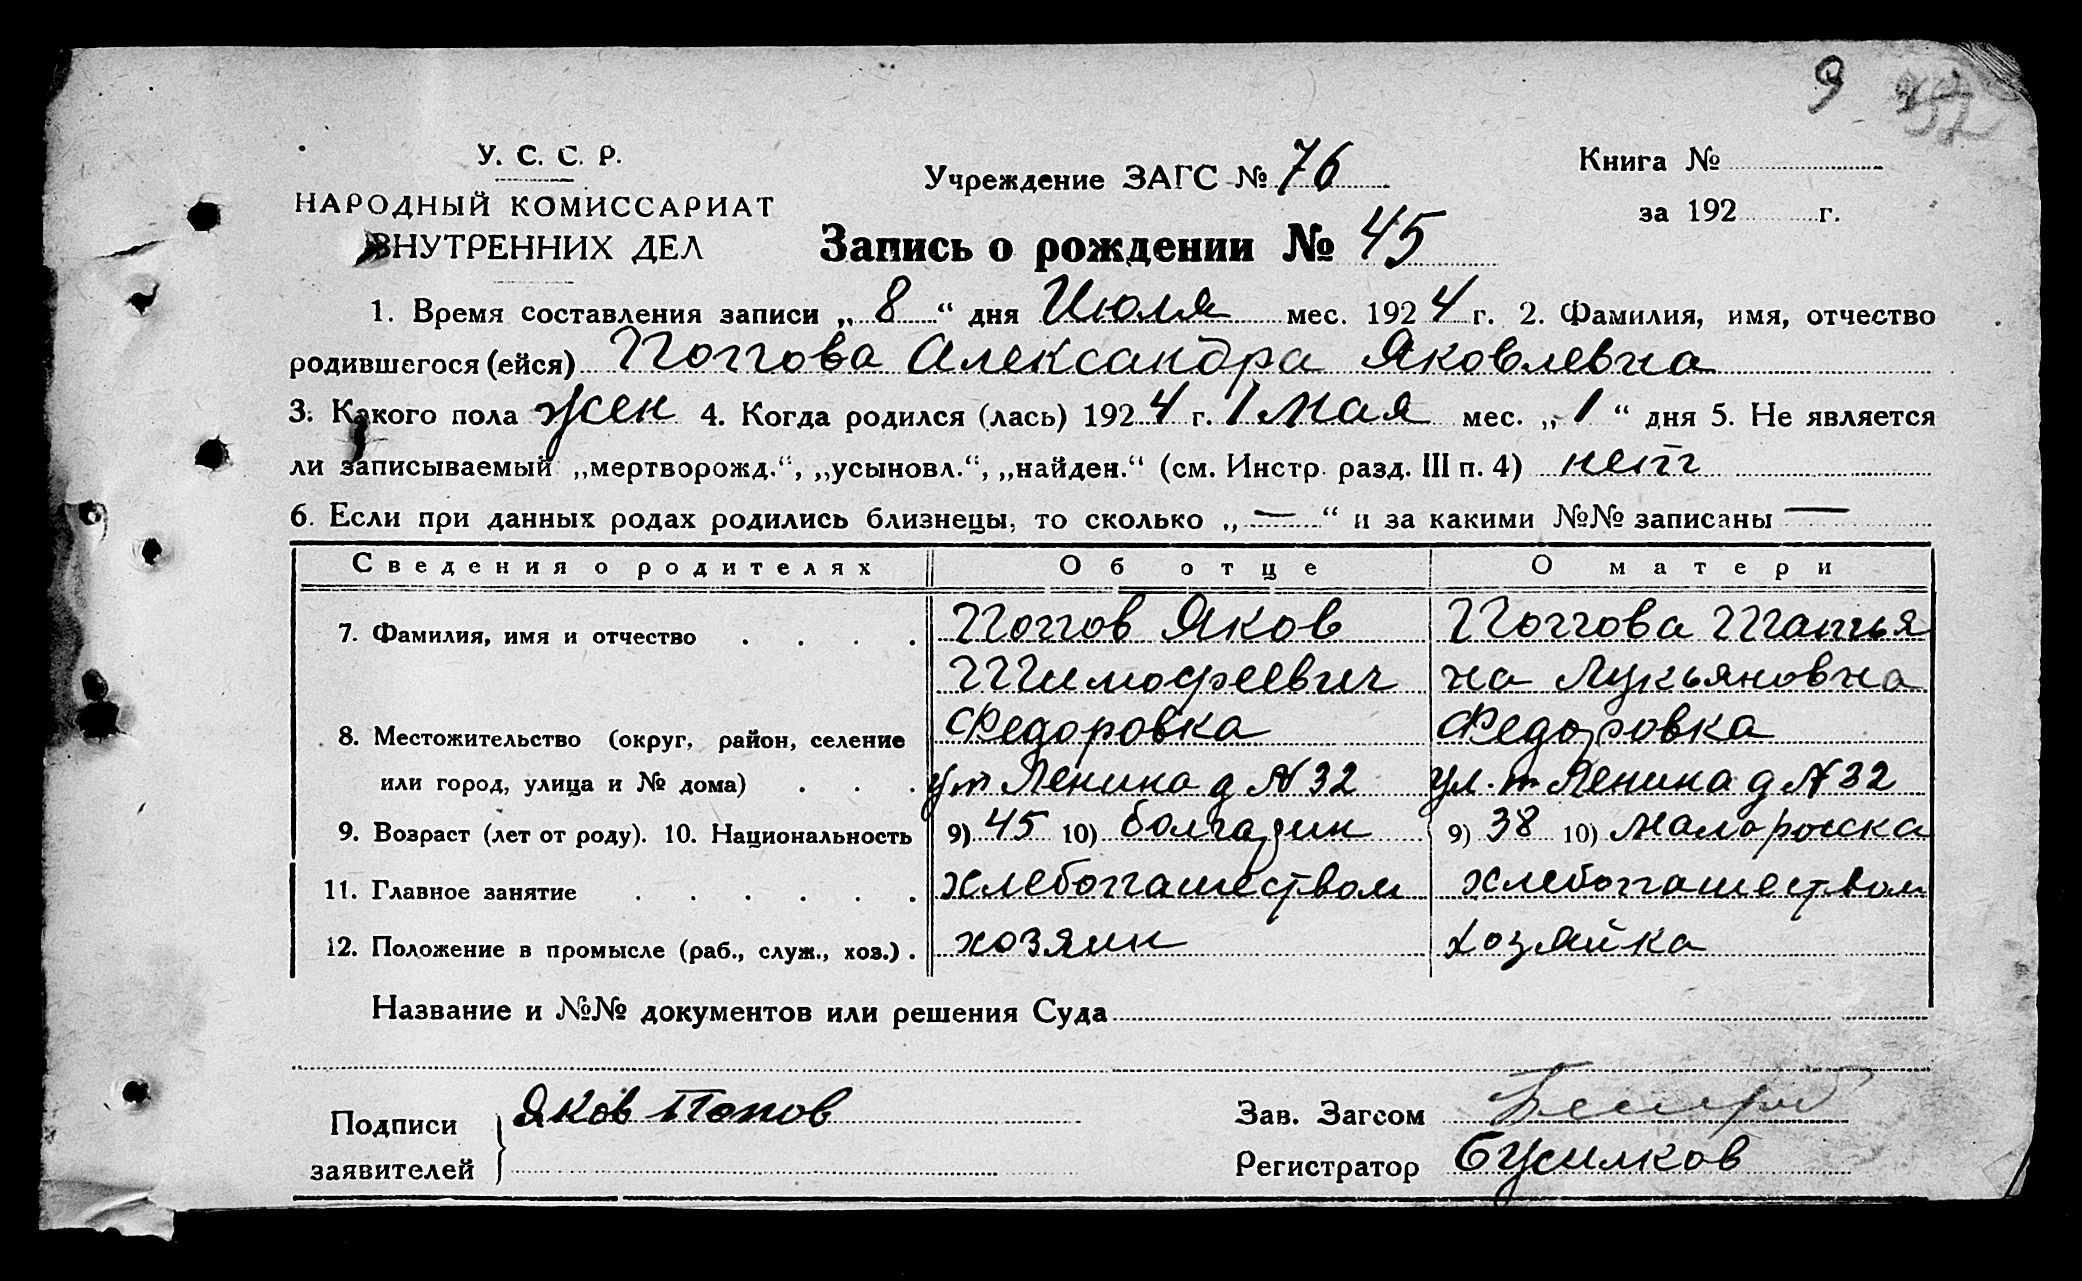 9
У. С. С. Р.
НАРОДНЫЙ КОМИССАРИАТ
ВНУТРЕННИХ ДЕЛ
Учреждение ЗАГС № 76
Запись о рождении № 45
Книга №
за 192 г.
1. Время составления записи „ 8 “ дня Июля мес. 192 4 г. 2. Фамилия, имя, отчество
родившегося (ейся) Попова Александра Яковлевна
3. Какого пола жен 4. Когда родился (лась) 192 4 г. 1 мая мес. „ 1 “ дня 5. Не является
ли записываемый „мертворожд.“, „усыновл.“, „найден.“ (см. Инстр. разд. III п. 4) нет
6. Если при данных родах родились близнецы, то сколько „ — “ и за какими №№ записаны —
Сведения о родителях Об отце О матери
7. Фамилия, имя и отчество . . . . Попов Яков Попова Татья
Тимофеевич на Лукьяновна
8. Местожительство (округ, район, селение Федоровка Федоровка
или город, улица и № дома) . . . ут Ленина д N 32 ул. т Ленина д N 32
9. Возраст (лет от роду). 10. Национальность 9) 45 10) болгарин 9) 38 10) малороска
11. Главное занятие . . . . . . хлебопашеством хлебопашеством
12. Положение в промысле (раб., служ., хоз.) . хозяин хозяйка
Название и №№ документов или решения Суда
Подписи
заявителей
Яков Попов
Зав. Загсом
Регистратор Бусилков